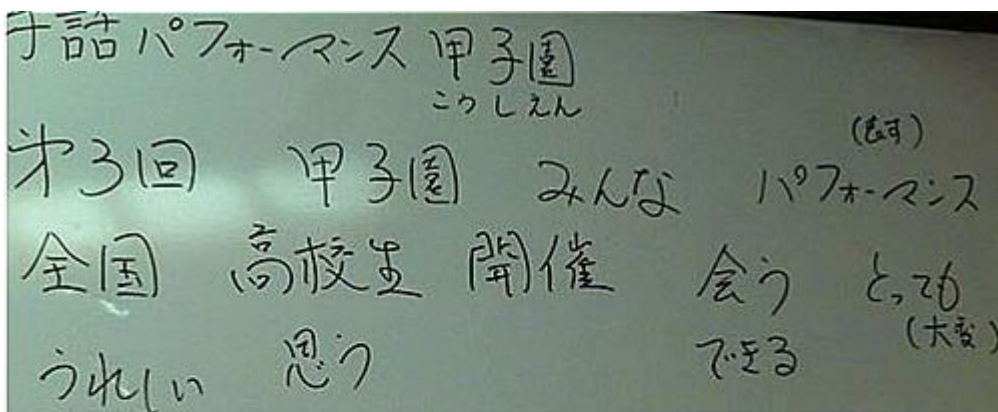 手話パフォーマンス甲子園
こうしえん
(表す)
第3回 甲子園 みんな パフォーマンス
全国 高校生 開催 会う とっても
(大変)
うれしい 思う できる